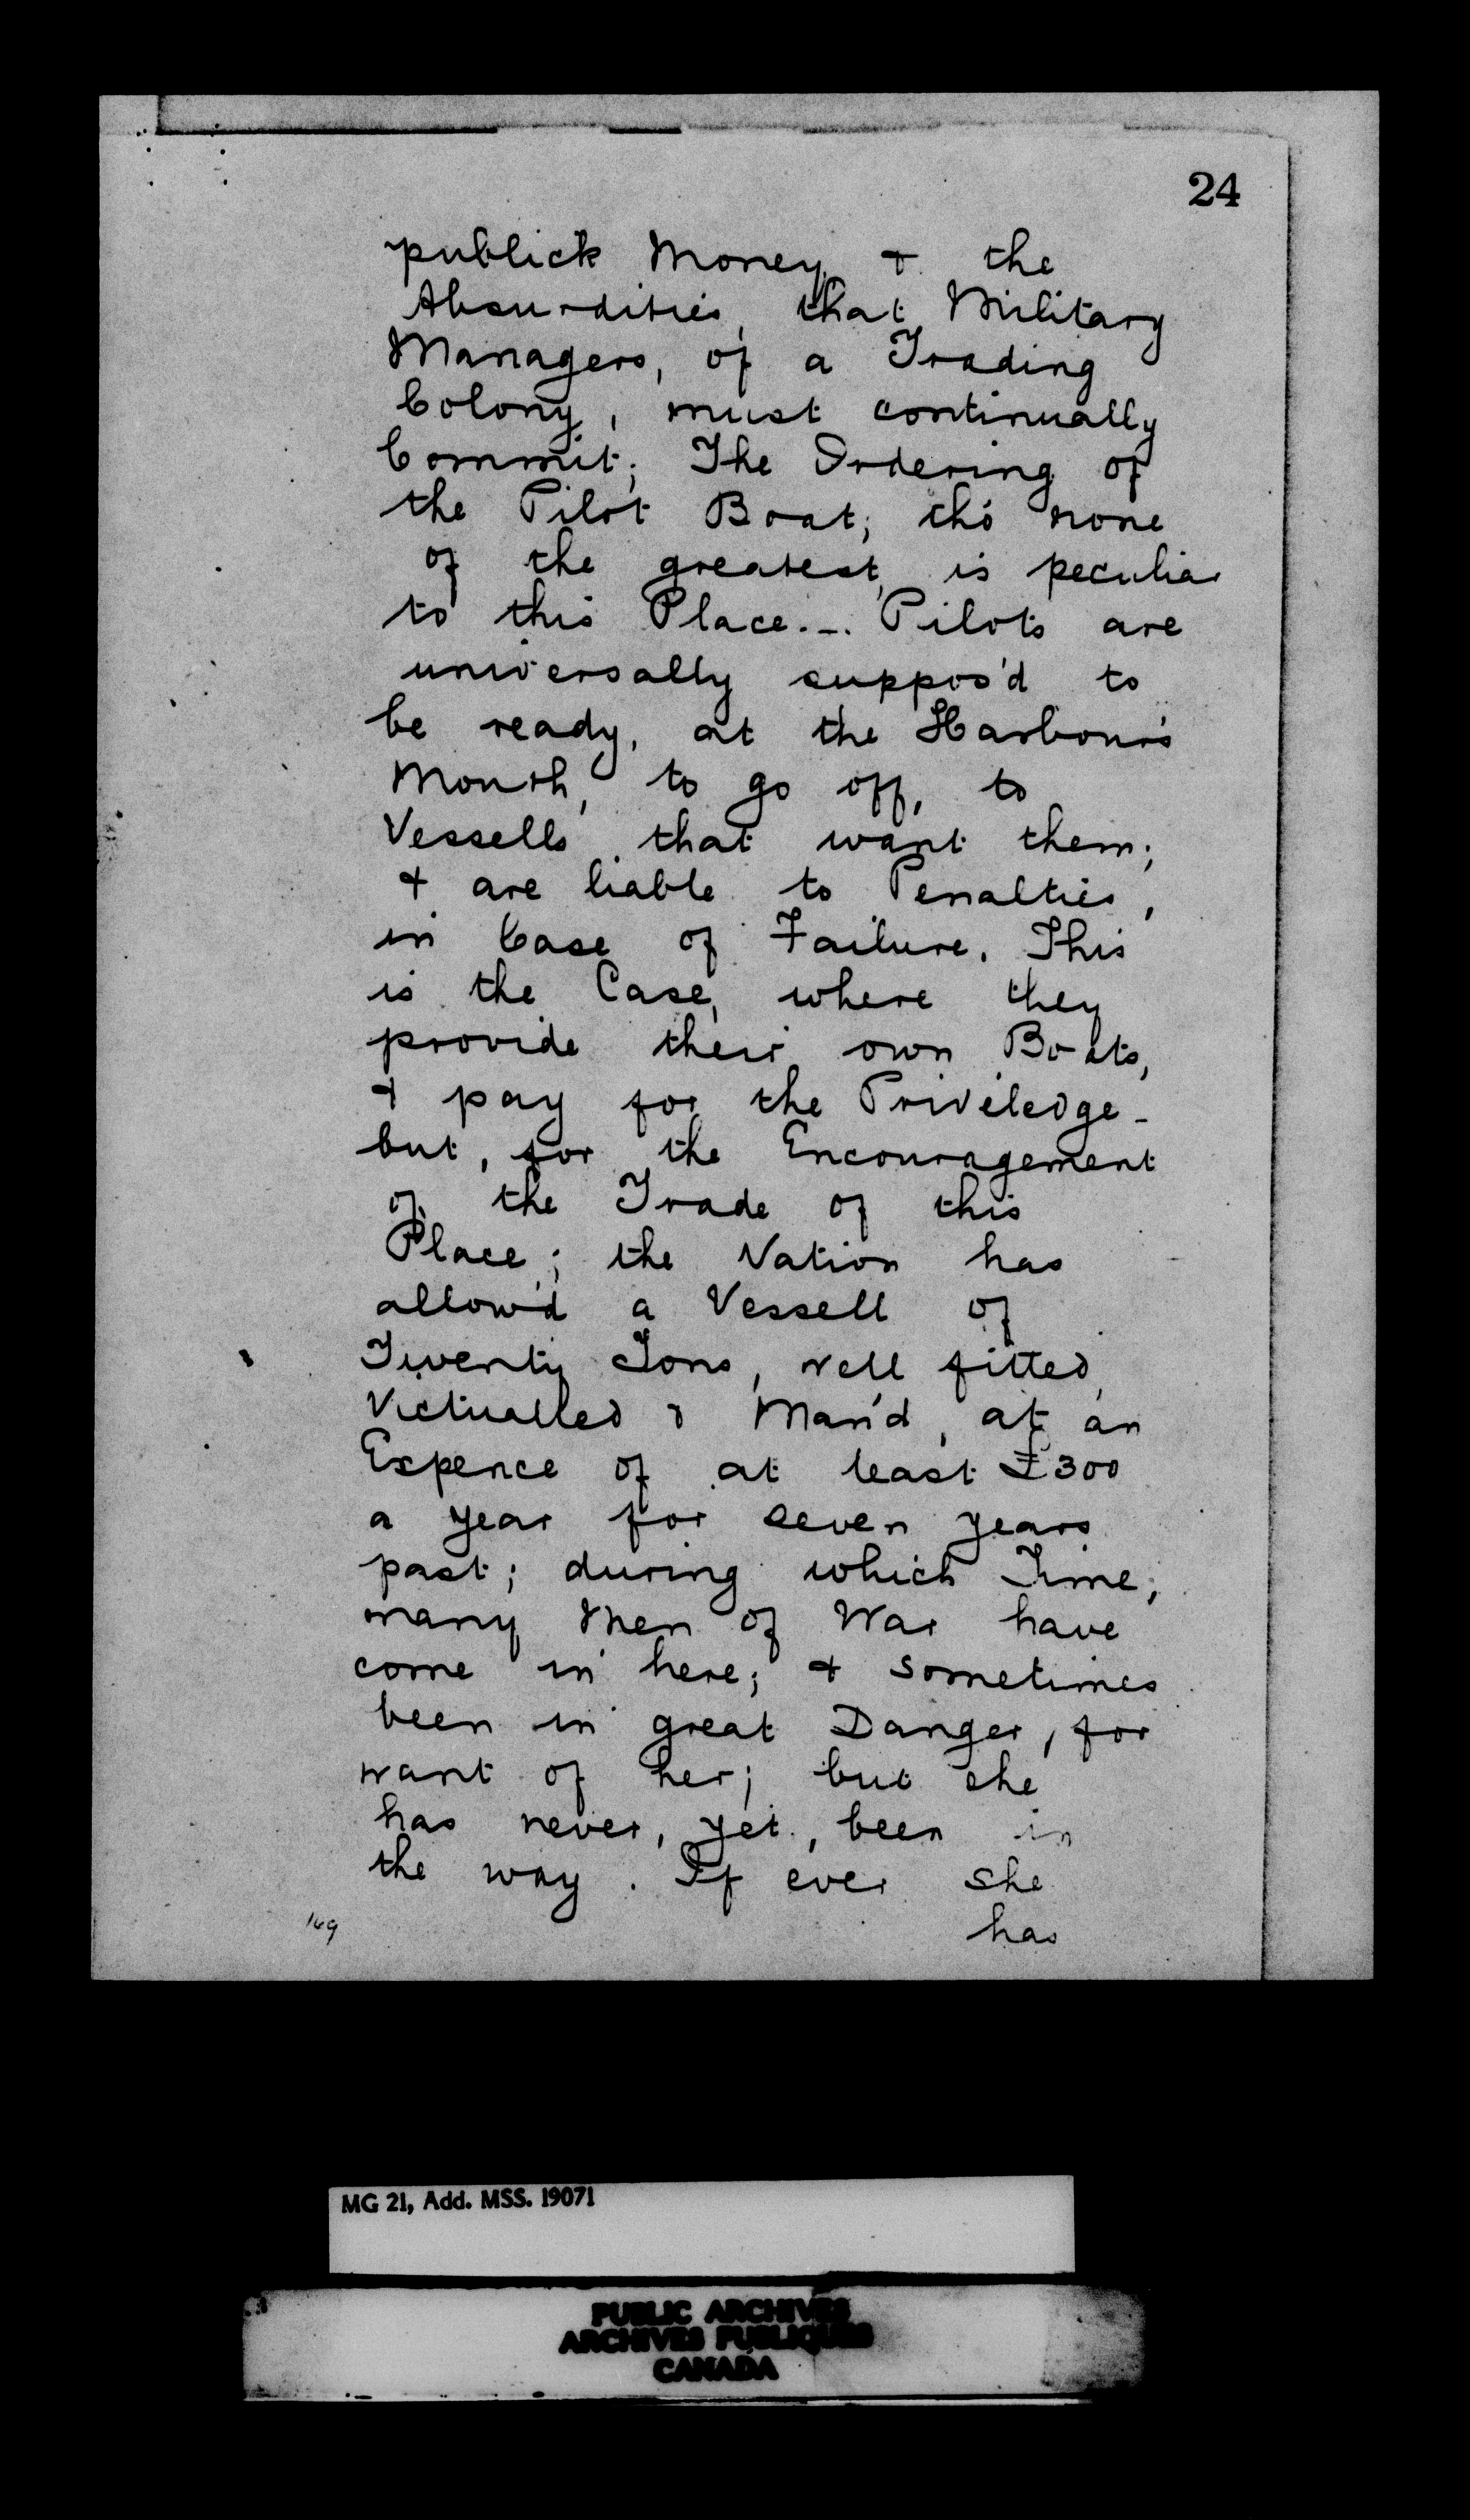 24
publick Money & the
Absurdities, that Military
Managers, of a Trading
Colony, must continually
Commit; The Ordering of
the Pilot Boat; tho' none
of the greatest, is peculiar
to this Place.-. Pilots are
universally suppos'd to
be ready, at the Harbour's
Mouth, to go off, to
Vessells that want them;
& are liable to Penalties,
in Case of Failure. This
is the Case, where they
provide their own Boats,
& pay for the Priviledge -
but, for the Encouragement
of the Trade of this
Place; the Nation has
allow'd a Vessell of
Twenty Tons, well fitted,
Victualled & Man'd, at an
Expence of at least £300
a year for seven years
past; during which Time,
many Men of War have
come in here; & sometimes
been in great Danger, for
want of her; but she
has never, yet, been in
the way. If ever she
has
169
MG 21, Add. MSS. 19071
PUBLIC ARCHIVES
ARCHIVES PUBLIQUES
CANADA